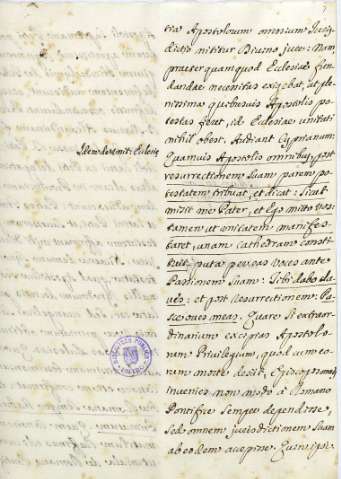 7
triæ Apostolorum omnium Juris-
dictio nititur Divino jure: Nam
praeterquamquod Eclesiae fun-
dandae necesitas exigebat, ut ple-
nissima quibusuis Apostolis po-
testas foret, id Eclesiae unitati
nihil obest. Audiant Cyprianum:
Idem de Unit: Eclesiæ
Quamuis Apostolis omnibus, post
resurrectionem suam parem po-
testatem tribuat, et dicat: Sicut
misit me Pater, et Ego mitto vos:
tamen ut unitatem manifes-
taret, unam cathedram consti
tuit, putà per eas voces ante
Passionem suam: Tibi dabo cla-
ves: et post resurrectionem: Pas-
ce oves meas. Quare si extraor-
dinarium excipias Apostolo-
rum Priuilegium, quod cum eo-
rum morte desiit, Episcopos
invenies non modò à Romano
Pontifice semper dependisse,
sed omnem jurisdictionem suam
ab eodem accepisse. Quin ipsi